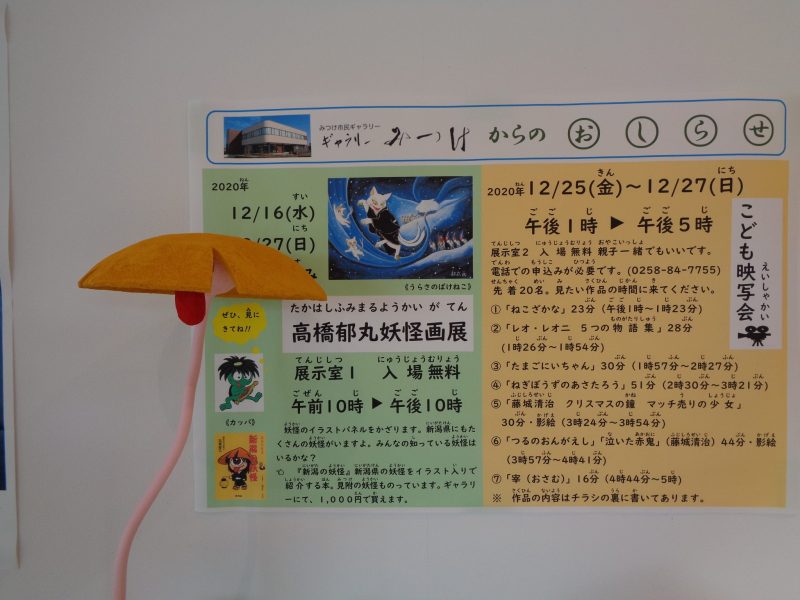 みつけ市民ギャラリー
ギャラリー みつけ からの おしらせ
2020年
12/16(水)
12/27(日)
《うらさのばけねこ》
ぜひ、見に
きてね!!
《カッパ》
新潟の妖怪
たかはしふみまるようかいがてん
高橋郁丸妖怪画展
展示室1 入場無料
午前10時 ▶ 午後10時
妖怪のイラストパネルをかざります。新潟県にもた
くさんの妖怪がいますよ。みんなの知っている妖怪は
いるかな?
『新潟の妖怪』新潟県の妖怪をイラスト入りで
紹介する本。見附の妖怪ものっています。ギャラリ
ーにて、1,000円で買えます。
2020年 12/25(金)~12/27(日)
午後1時 ▶ 午後5時
こども映写会
展示室2 入場無料 親子一緒でもいいです。
電話での申込みが必要です。(0258-84-7755)
先着20名。見たい作品の時間に来てください。
①「ねこざかな」23分(午後1時~1時23分)
②「レオ・レオニ 5つの物語集」28分
(1時26分~1時54分)
③「たまごにいちゃん」30分(1時57分~2時27分)
④「ねぎぼうずのあさたろう」51分(2時30分~3時21分)
⑤「藤城清治 クリスマスの鐘 マッチ売りの少女」
30分・影絵(3時24分~3時54分)
⑥「つるのおんがえし」「泣いた赤鬼」(藤城清治)44分・影絵
(3時57分~4時41分)
⑦「宰(おさむ)」16分(4時44分~5時)
※ 作品の内容はチラシの裏に書いてあります。